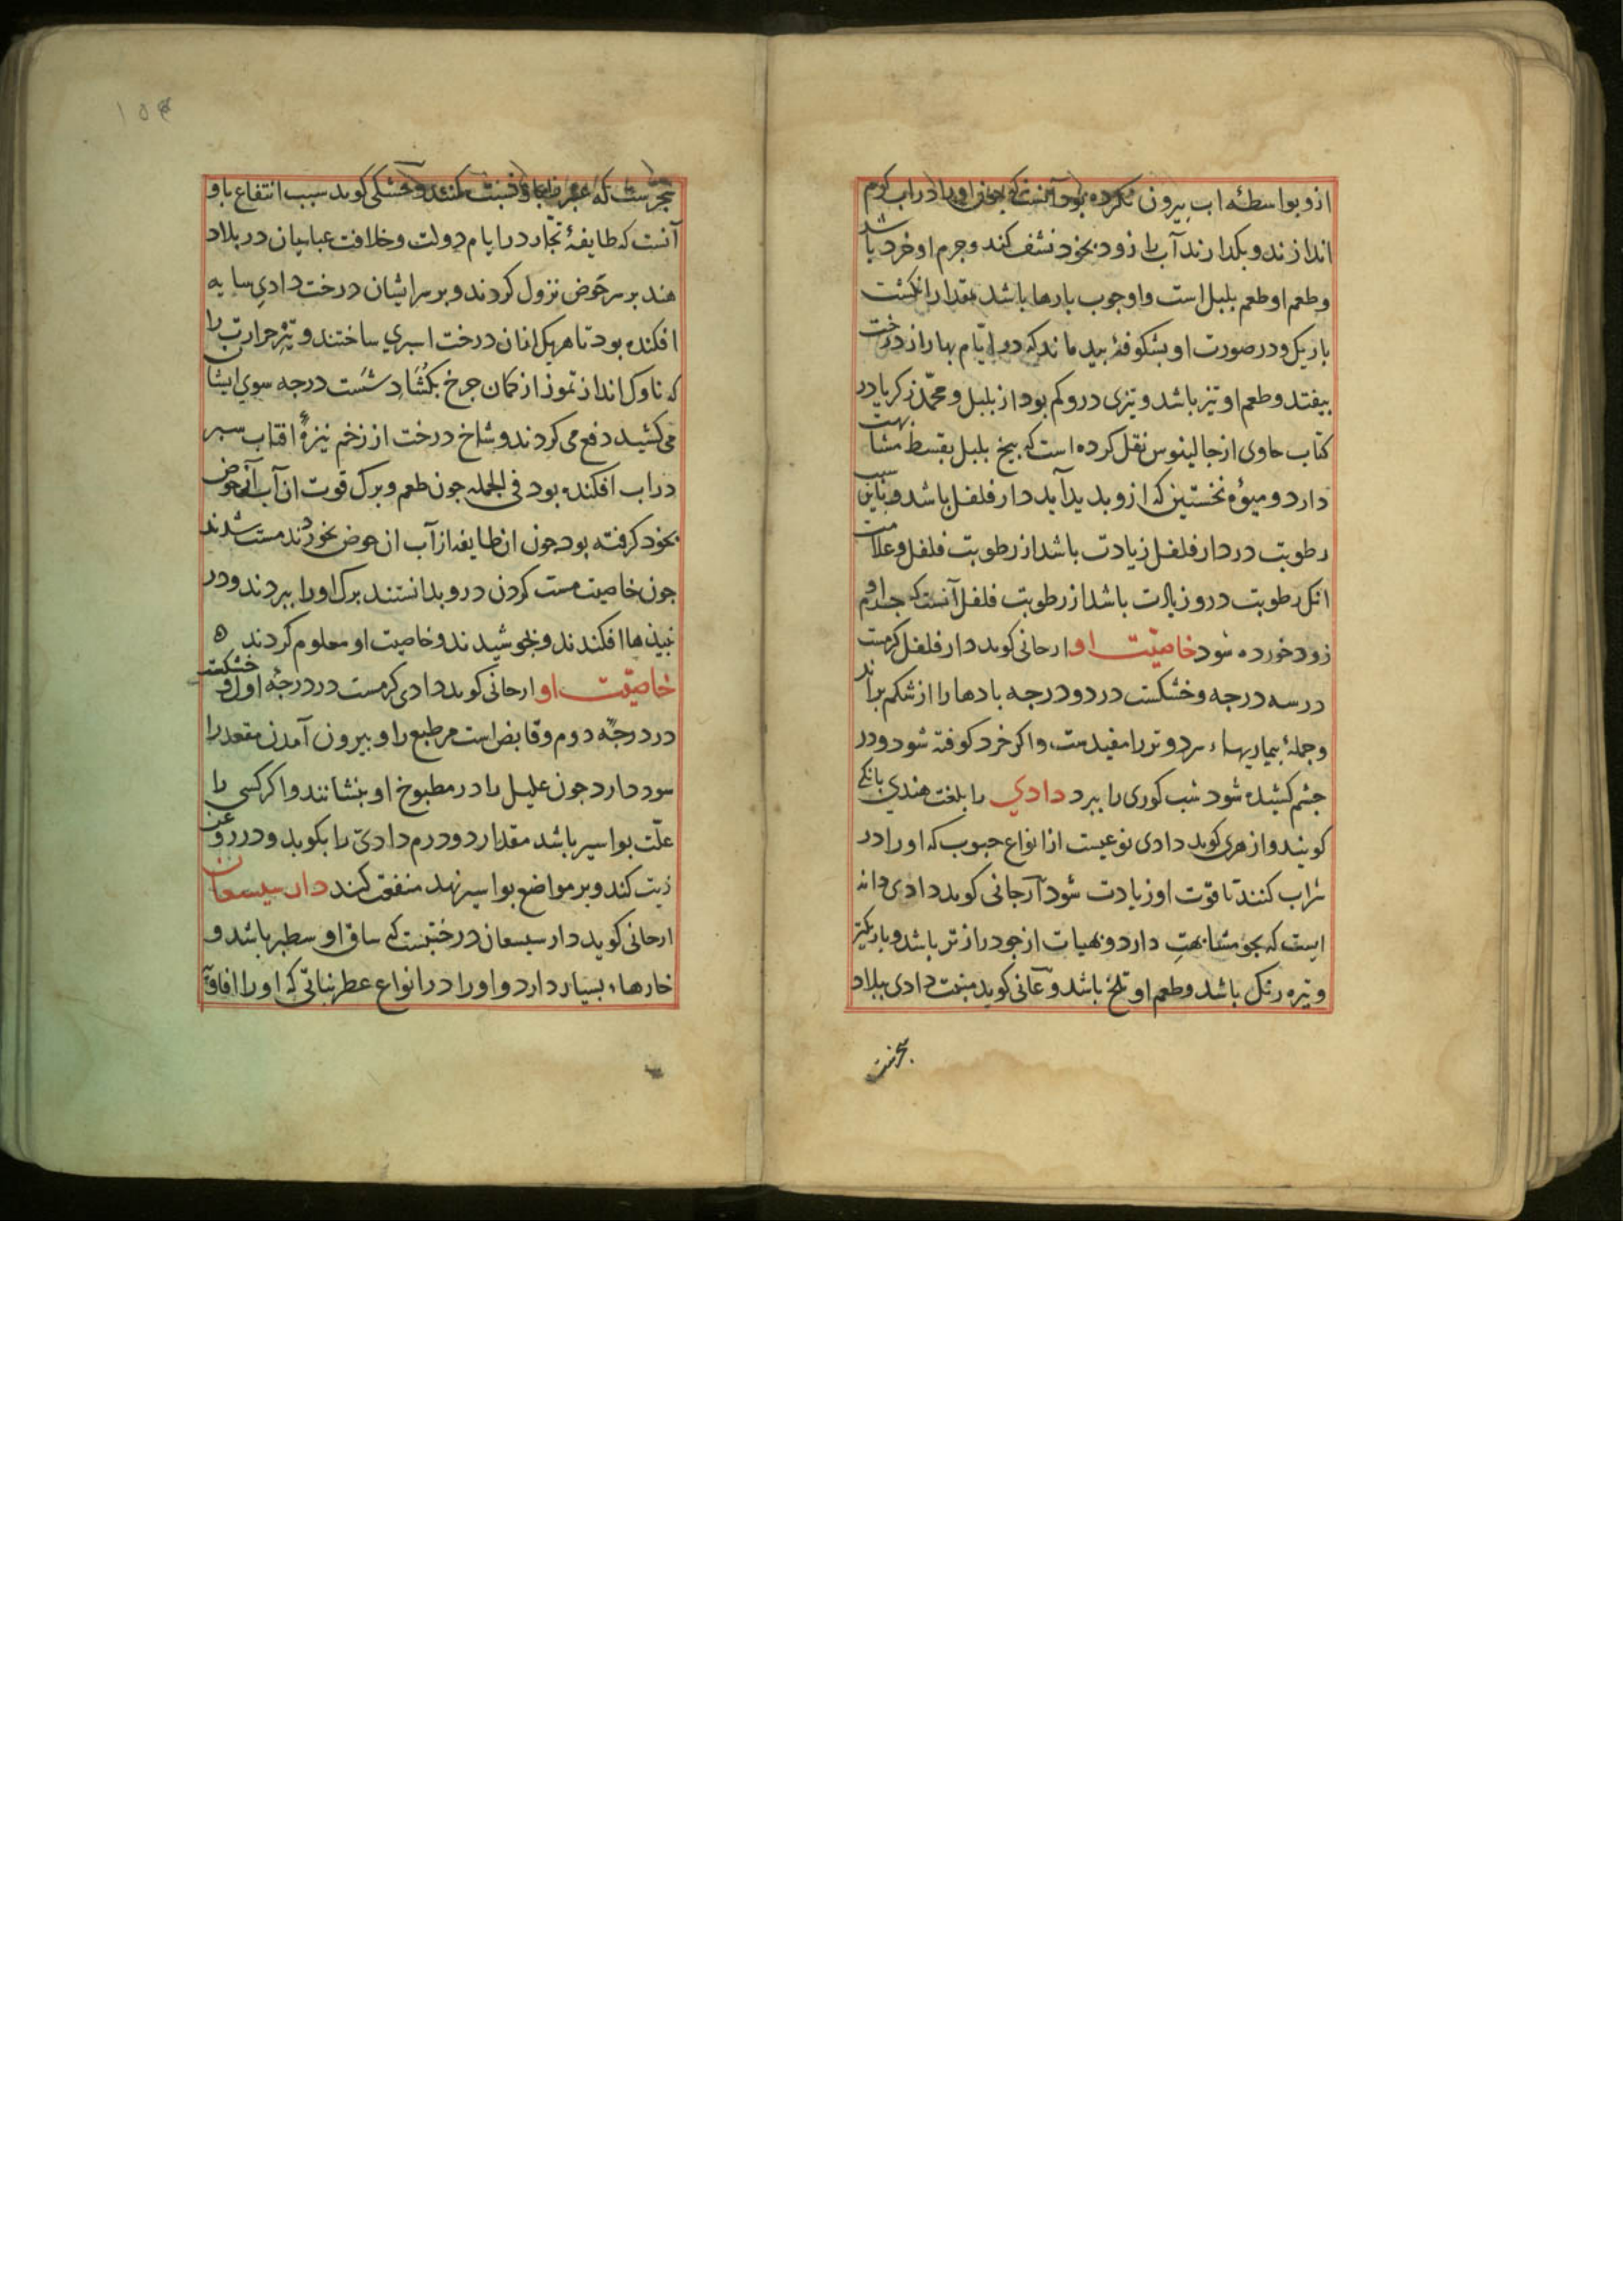 ازو بواسطهٔ اب بیرون نکرده بود آنست که چون او را در اب کرم
اندازند و بکدارند آب را زود بخود نشف کند و جرم او خرد باشد
و طعم او طعم بلبل است و او چوب بارها باشد بمقدار انکشت
باریک و در صورت او بشکوفهٔ بید ماند که در ایّام بهار از درخت
بیفتد و طعم او تیز باشد و تیزی درو کم بود از بلبل و محمّد زکریا در
کتاب حاوی از جالینوس نقل کرده است که بیخ بلبل بقسط مشابهت
دارد و میوهٔ نخستین که ازو بدید آید دار فلفل باشد و باین سبب
رطوبت در دار فلفل زیادت باشد از رطوبت فلفل و علامت
انک رطوبت درو زیادت باشد از رطوبت فلفل آنست که جرم او
زود خورده شود خاصیّت او ارجانی کوید دار فلفل کرمست
در سه درجه و خشکست در دو درجه بادها را از شکم براند
و جملهٔ بیماریهاء سرد و تر را مفیدست و اکر خرد کوفته شود و در
جشم کشیده شود شب کوری را ببرد دادي را بلغت هندی بانکی
کویند و ازهری کوید دادی نوعیست از انواع حبوب که او را در
شراب کنند تا قوّت او زیادت شود آرجانی کوید دادی دانه
ایست که بجو مشابهتِ دارد و بهیات از جو دراز تر باشد و باریکتر
و تیره رنک باشد و طعم او تلخ باشد و عّانی کوید منبت دادی ببلاد
شجریست که
کوید سبب انتفاع باو
آنست که طایفهٔ تجّار در ایام دولت و خلافت عباسیان در بلاد
هند بر سر حَوض نزول کردند و بر سر ایشان درخت دادی سایه
افکنده بود تا هریک ازان درخت اسپري ساختند و تیر حرارت را
که ناوک انداز تموز از کمان جرخ بکُشَاد شَست درجه سوی ایشان
می کشید دفع می کردند و شاخ درخت از زخم نیزهٔ افتاب سپر
در اب افکنده بود فی الجمله جون طعم و برک قوت ان آب از حوض
بخود کرفته بود جون ان طایفه از آب ان حوض بخوردند مست شدند
جون خاصیت مست کردن درو بدانستند برک او را ببردند و در
نبیذها افکندند و بجوشیدند و خاصیت او معلوم کردند ه
خاصیّت او ارجانی کوید دادی کرمست در درجهٔ اول و خشکست
در درجّه دوم و قابض است مر طبع را و بیرون آمدن مقعد را
سود دارد جون علیل را در مطبوخ او بنشانند و اکر کسی را
علّت بواسیر باشد مقدار دو درم دادی را بکوبد و در روغن
زیت کند و بر مواضع بواسیر نهد منفعت کند دار سیسعان
ارجانی کوید دار سیسعان درختیست که ساق او سطبر باشد و
خارهاء بسیار دارد و او را در انواع عطر نباتی که او را افاویّه